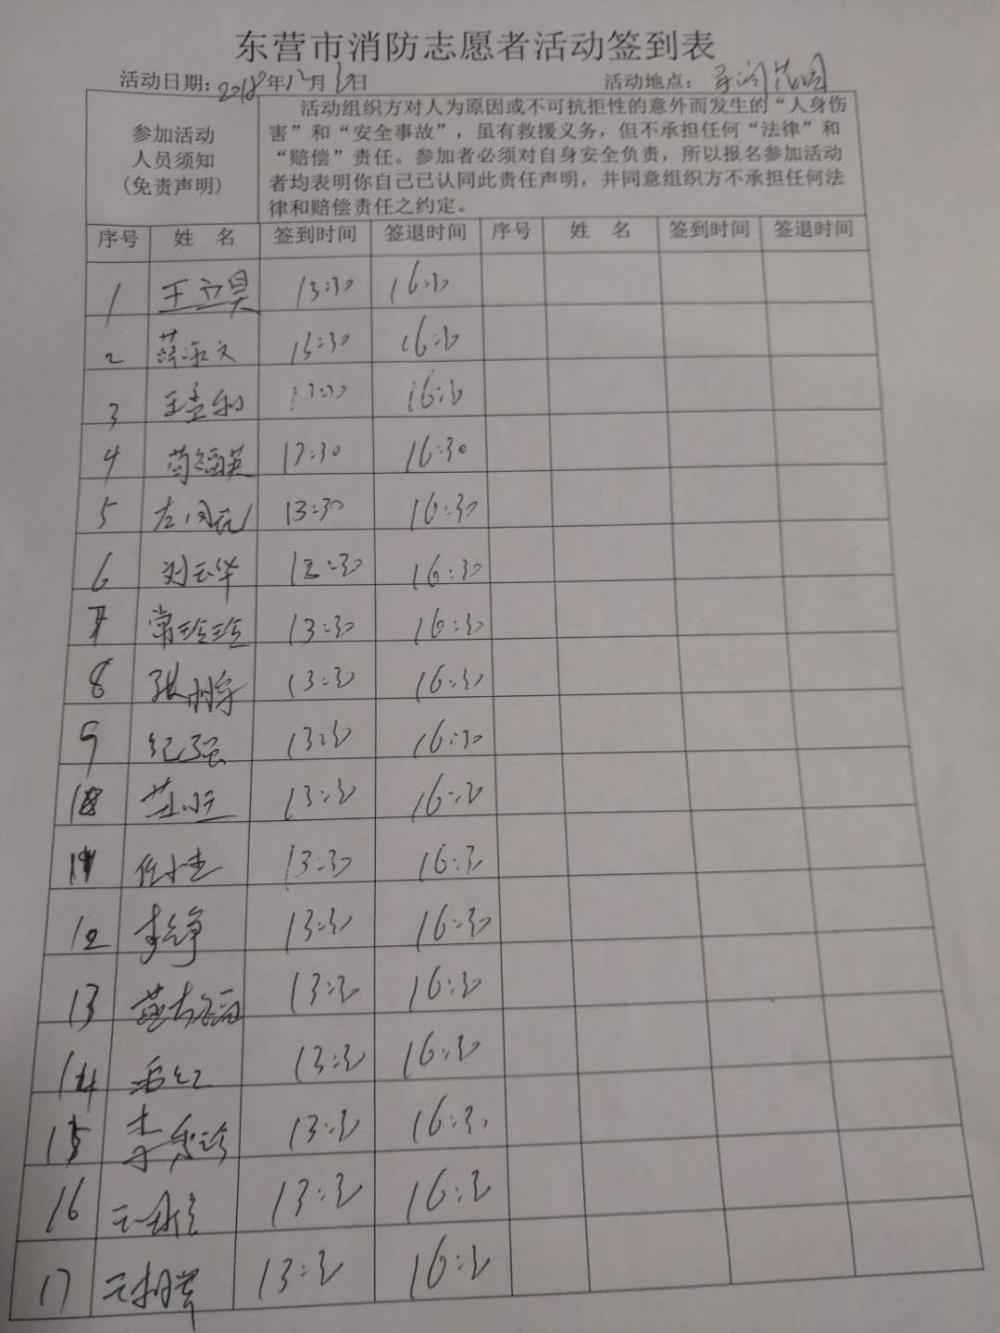 东营市消防志愿者活动签到表
活动日期：2018年12月 日 活动地点：
参加活动
人员须知
(免责声明)
活动组织方对人为原因或不可抗拒性的意外而发生的“人身伤
害”和“安全事故”，虽有救援义务，但不承担任何“法律”和
“赔偿”责任。参加者必须对自身安全负责，所以报名参加活动
者均表明你自己已认同此责任声明，并同意组织方不承担任何法
律和赔偿责任之约定。
序号 姓 名 签到时间 签退时间 序号 姓 名 签到时间 签退时间
1 王 13:30 16:30
2 文 13:30 16:30
3 王 13:30 16:30
4 苟福英 13:30 16:30
5 左 13:30 16:30
6 刘云华 13:30 16:30
7 常珍珍 13:30 16:30
8 张 13:30 16:30
9 纪强 13:30 16:30
10 13:30 16:30
11 任小杰 13:30 16:30
12 李 13:30 16:30
13 13:30 16:30
14 红 13:30 16:30
15 李秀珍 13:30 16:30
16 王 13:30 16:30
17 王 13:30 16:30